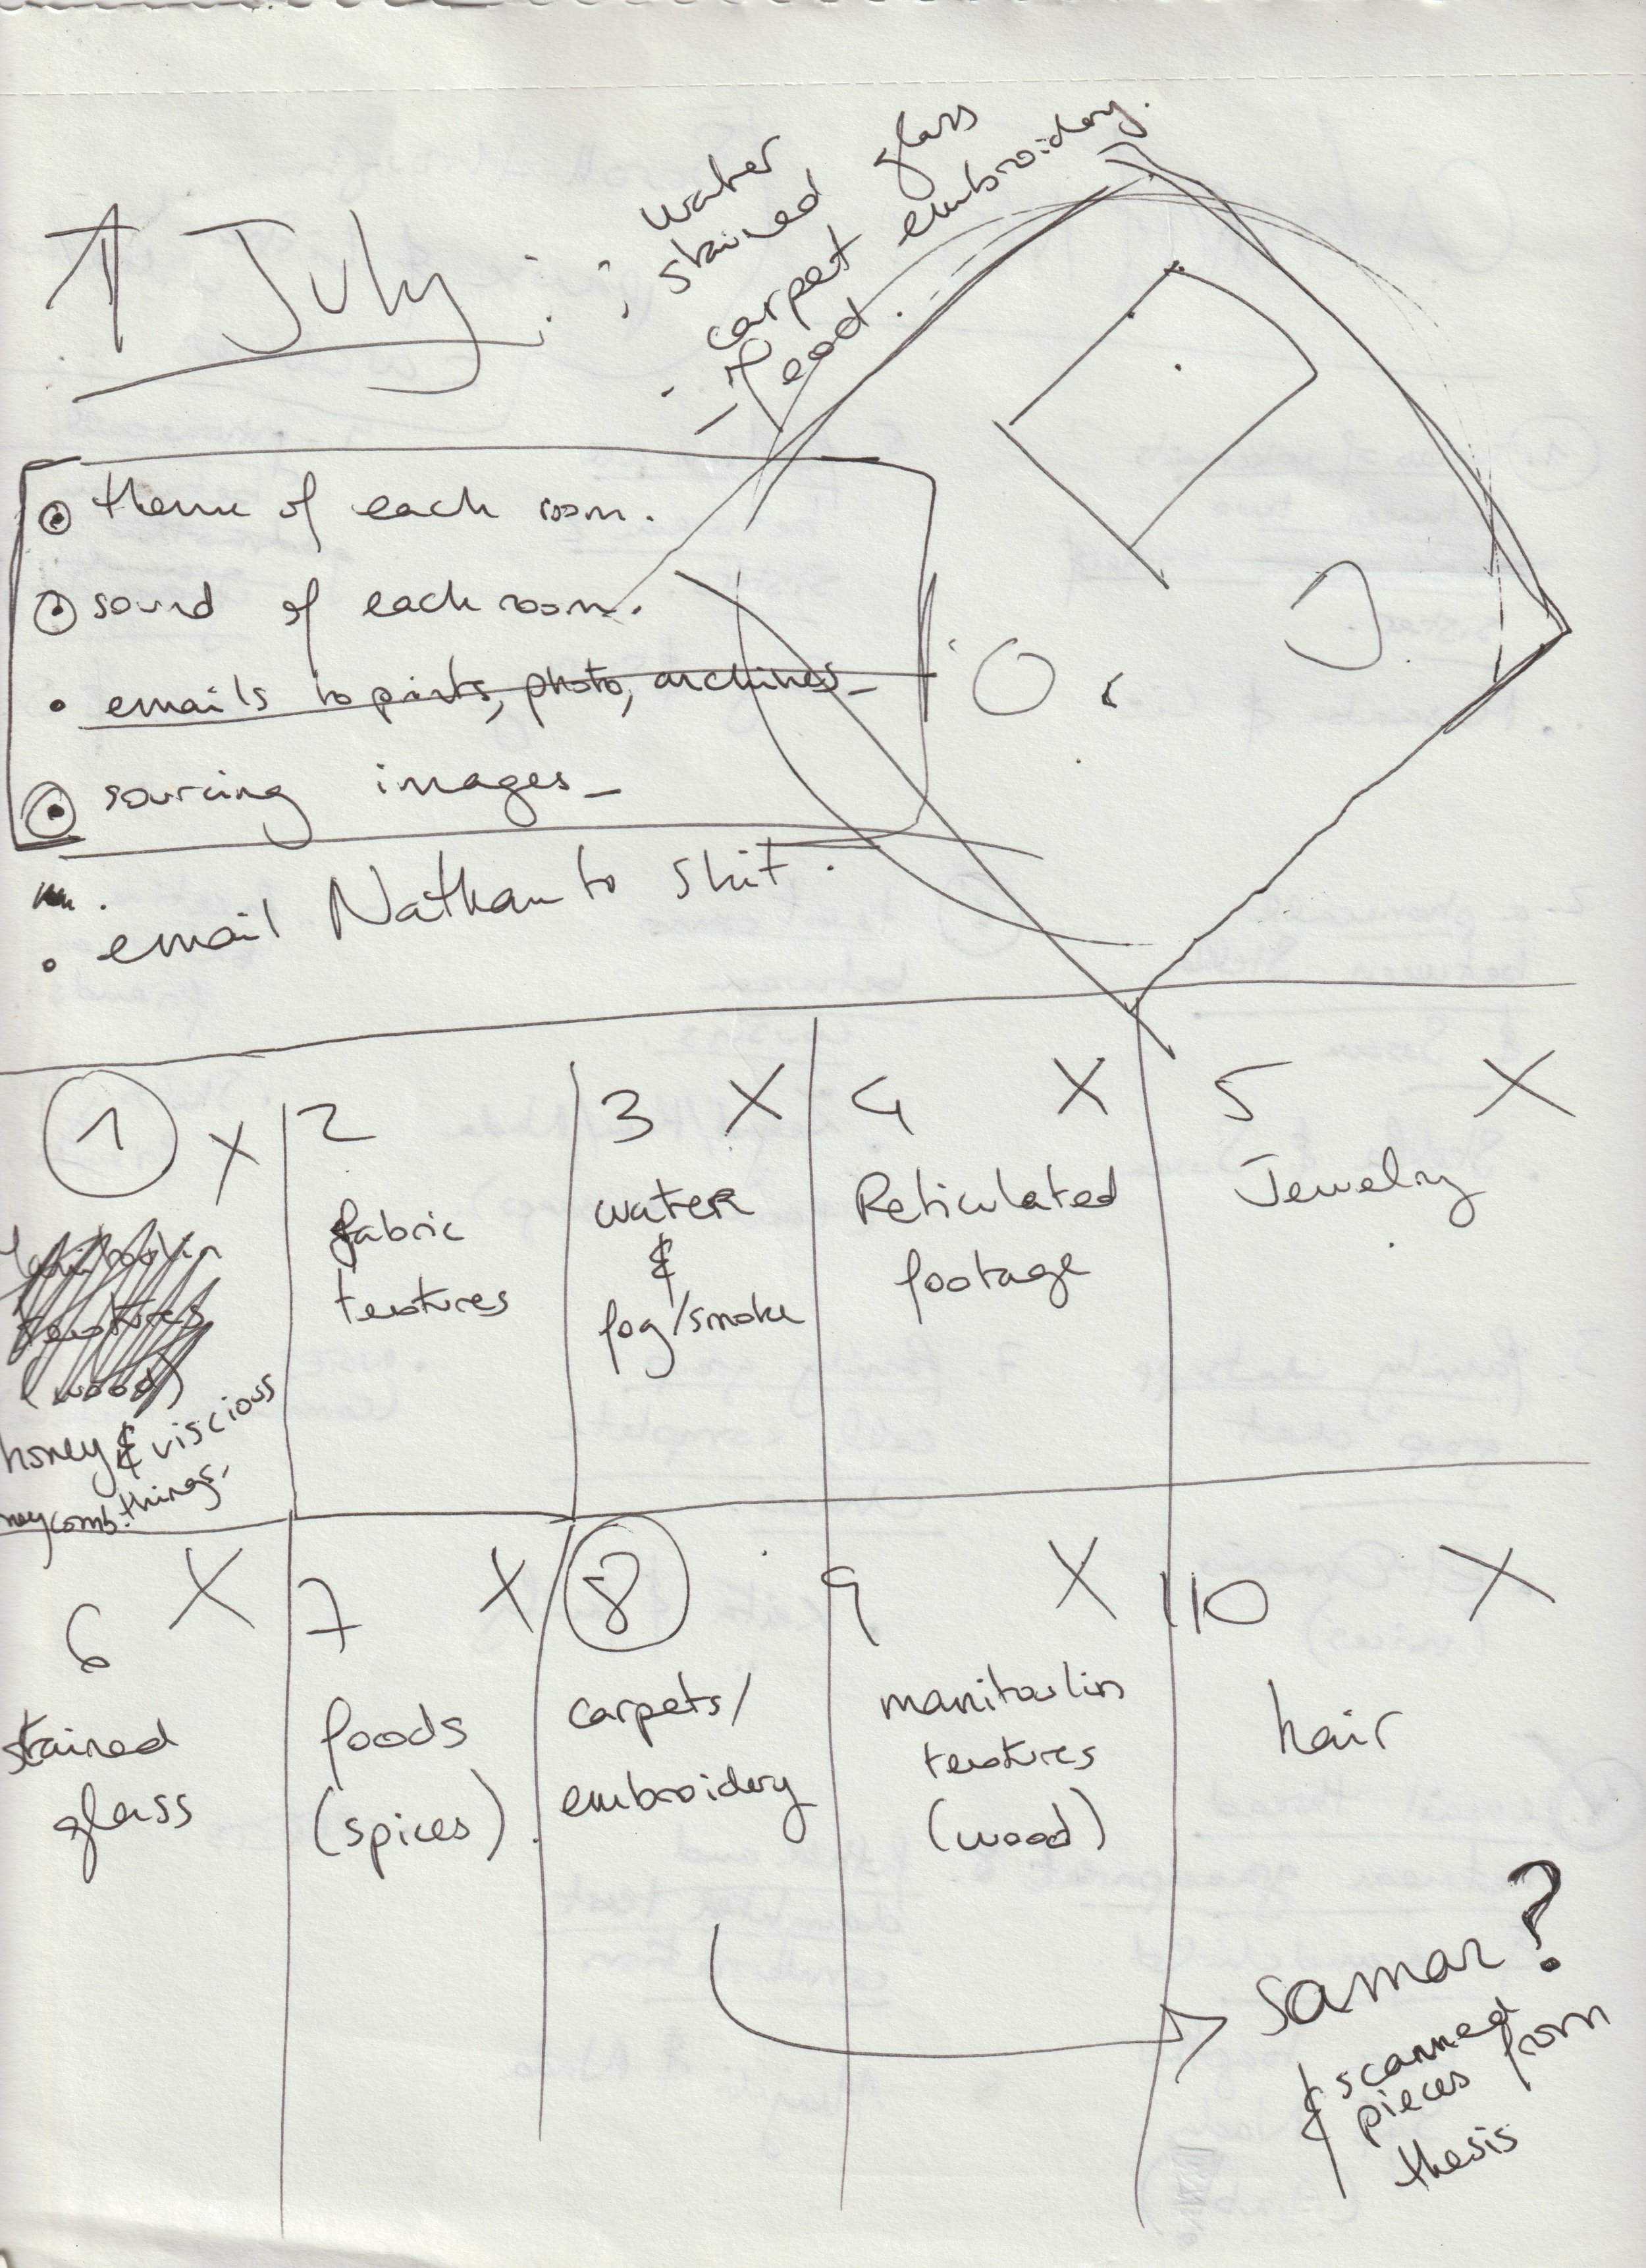 ↑ July :
; water
stained glass
carpet embroidery.
- food.
⊙ theme of each room.
⊙ sound of each room.
• emails to prints, photo, archives_
⊙ sourcing images_
• email Nathan to shit.
1 X
textures
(wood)
honey & viscious
things.
2
fabric
textures
3 X
water
&
fog/smoke
4 X
Reticulated
footage
5 X
Jewelry
6 X
stained
glass
7 X
foods
(spices).
8
carpets/
embroidery
9 X
manitoulin
textures
(wood)
10 X
hair
samar?
& scanned
pieces from
thesis